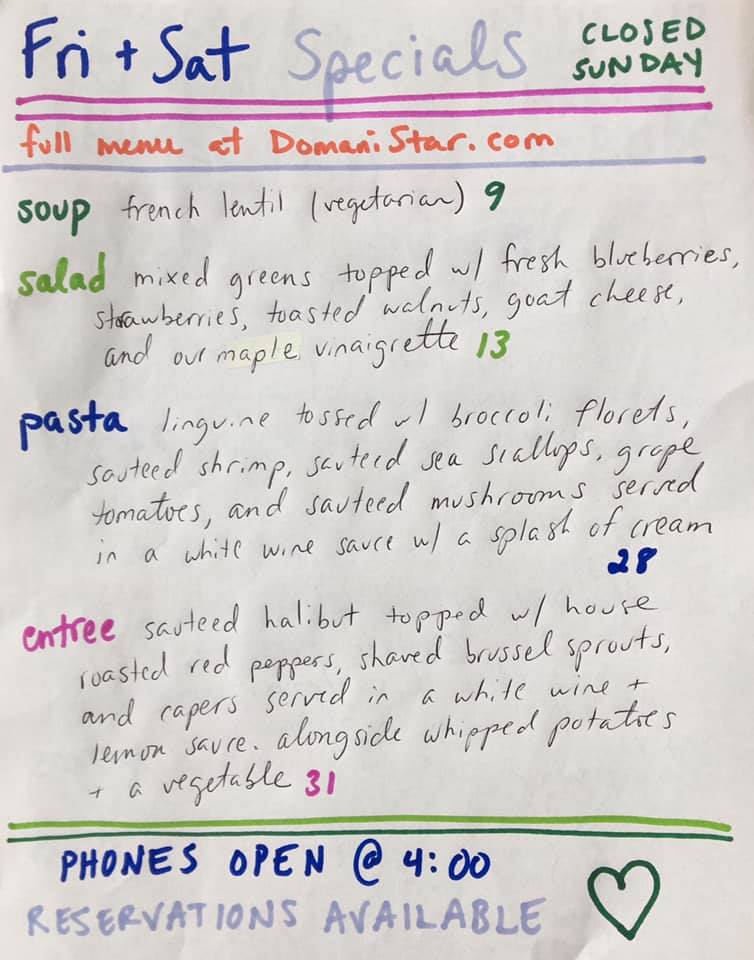 Fri + Sat Specials CLOSED SUNDAY
full menu at DomaniStar.com
soup french lentil (vegetarian) 9
salad mixed greens topped w/ fresh blueberries,
strawberries, toasted walnuts, goat cheese,
and our maple vinaigrette 13
pasta linguine tossed w/ broccoli florets,
sauteed shrimp, sauteed sea scallops, grape
tomatoes, and sauteed mushrooms served
in a white wine sauce w/ a splash of cream
28
entree sauteed halibut topped w/ house
roasted red peppers, shaved brussel sprouts,
and capers served in a white wine +
lemon sauce. alongside whipped potatoes
+ a vegetable 31
PHONES OPEN @ 4:00
RESERVATIONS AVAILABLE